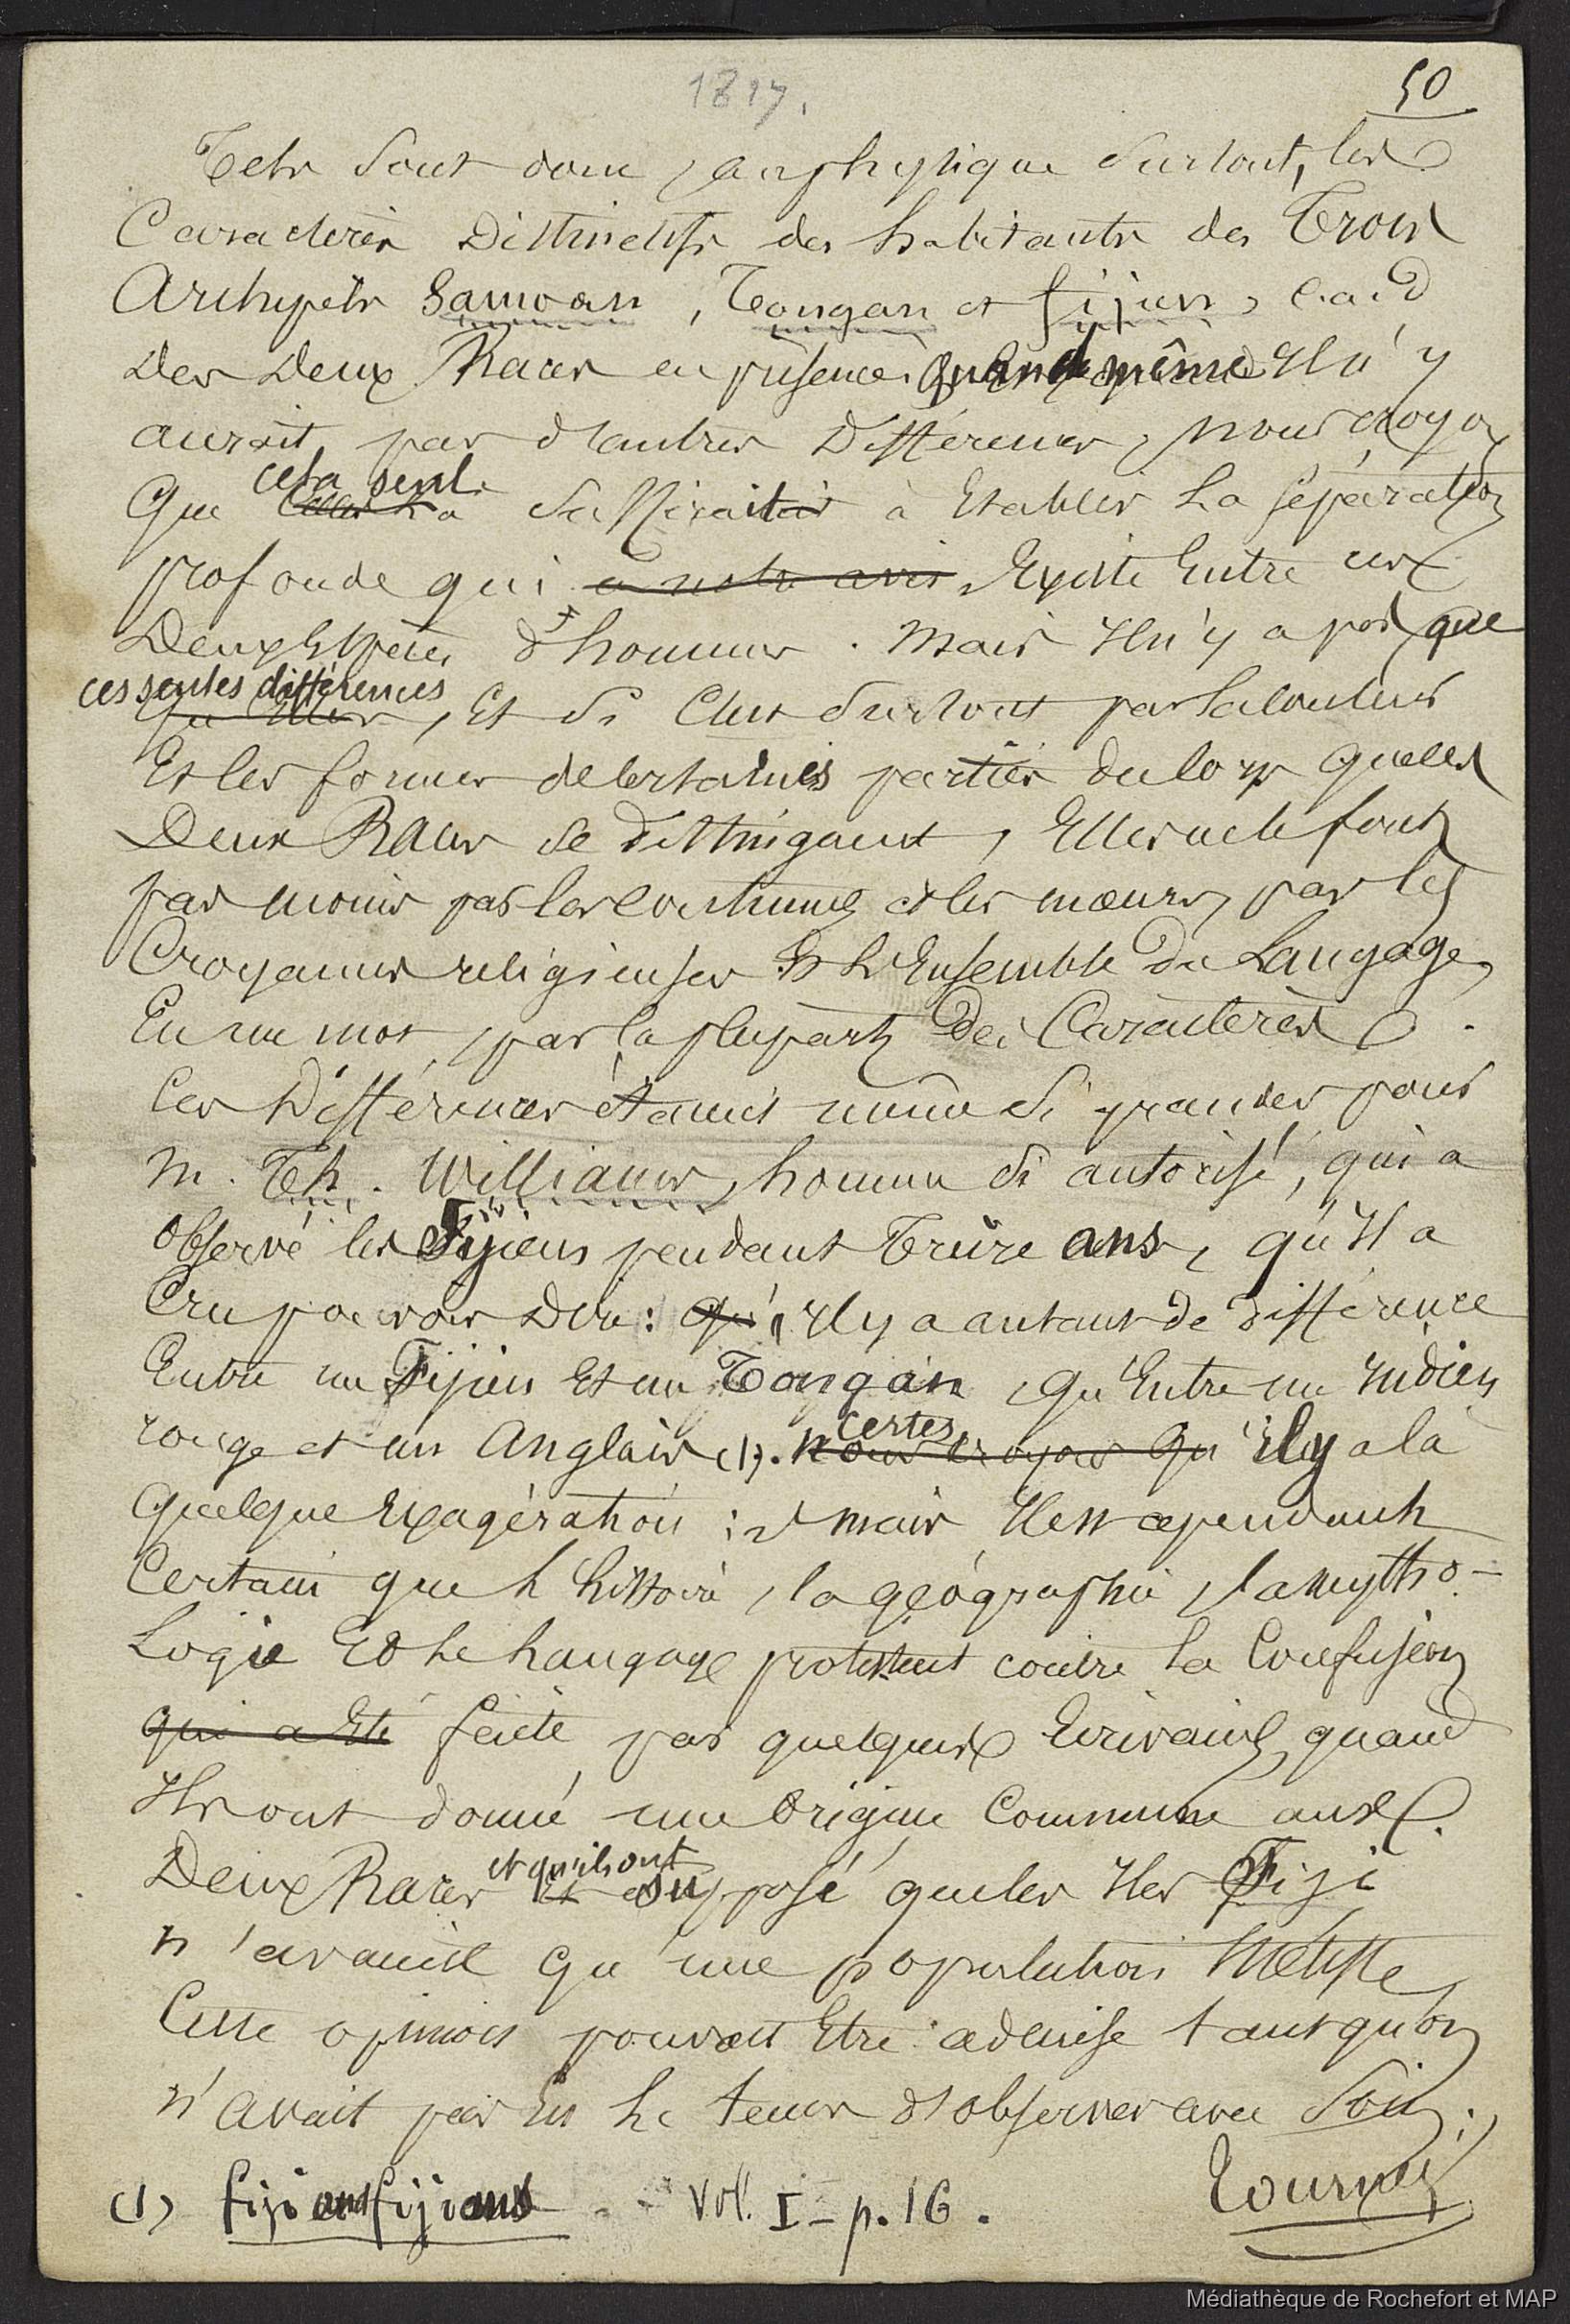 1817.
50
Tels sont donc, au physique surtout, les
Caractères Distinctifs des habitants des Trois
Archipels Samoan, Tongan et fijien, c. a. d
des Deux Races en présence. Quand même Il n'y
aurait pas d'autres Différences, nous croyons
cela seul
Que suffirait à Etablir la séparation
profonde qui à notre avis, Existe Entre ces
Deux Espèces d'hommes. Mais Il n'y a pas que
ces seules différences
qu'Elles, Et si C'est surtout par la couleur
Et les formes de certaines parties du corps que les
Deux Races se distinguent, Elles ne le font
pas moins par les coutumes et les mœurs, par les
Croyances religieuses Et l'Ensemble du Langage,
En un mot, par la plupart des Caractères.
Ces Différences étaient même si grandes pour
M. Th. Williams, homme si autorisé, qui a
Observé les Fijiens pendant Treize ans, qu'Il a
Cru pouvoir Dire: qu' Il y a autant de différence
Entre un Fijien Et un Tongan, qu'Entre un Indien
certes,
rouge et un Anglais (1). nous croyons qu' il y a là
Quelque Exagération; mais Il est cependant
Certain que l'histoire, la géographie, la mytho-
Logie Et le Langage protestent contre la Confusion
qui a Eté faite par quelques Ecrivains, quand
Ils ont donné une Origine Commune aux
et qu'ils ont
Deux Races Et supposé que les Iles Fiji
n'avaient qu'une population Métisse,
Cette opinion pouvait Etre admise tant qu'on
n'avait pas Eu le temps d'observer avec Soin;
Tournez
(1) fiji and fijians - Vol. I - p. 16.
Médiathèque de Rochefort et MAP